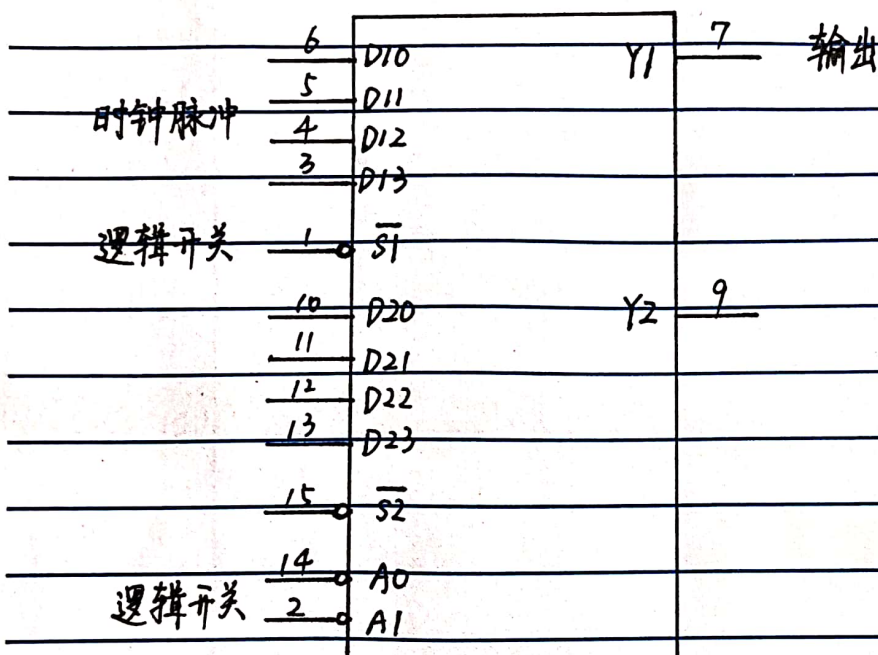 6 D10 Y1 7 输出
5 D11
时钟脉冲
4 D12
3 D13
逻辑开关 1 S1
10 D20 Y2 9
11 D21
12 D22
13 D23
15 S2
14 A0
逻辑开关 2 A1